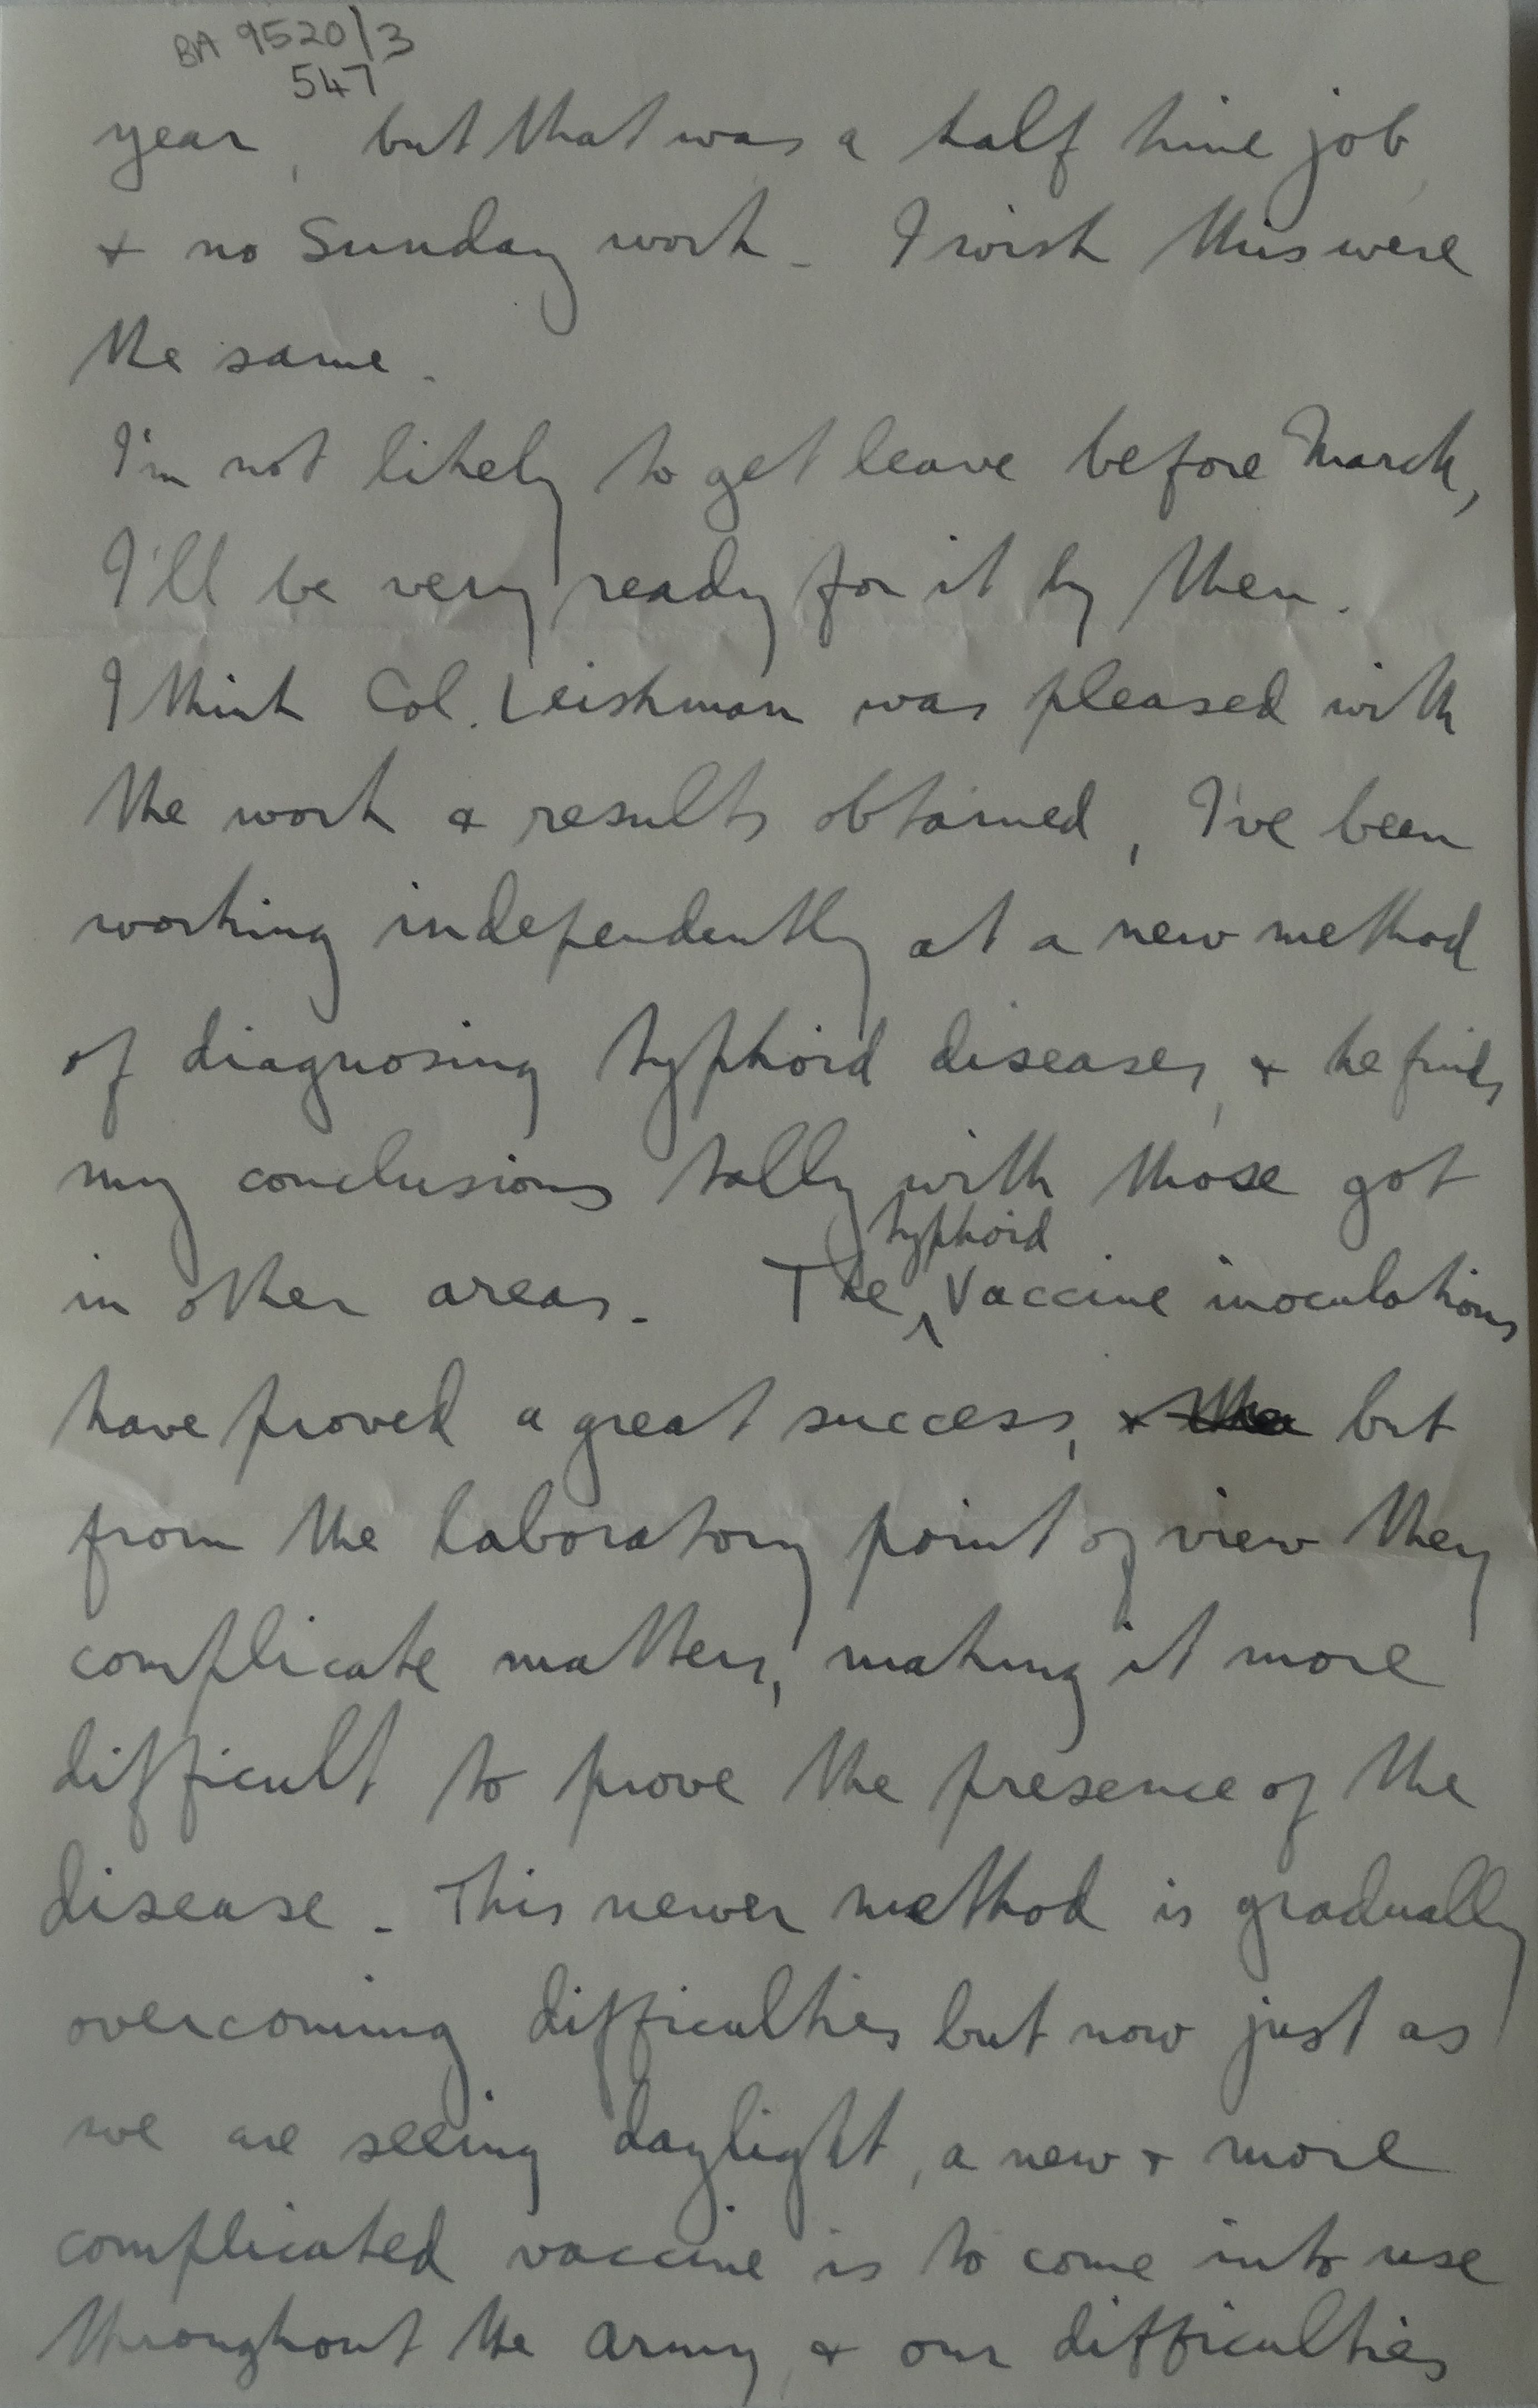 BA 9520/3
547
year, but that was a half time job
+ no Sunday work - I wish this were
the same.
I'm not likely to get leave before March,
I'll be very ready for it by then.
I think Col. Leishman was pleased with
the work & results obtained, I've been
working independently at a new method
of diagnosing typhoid diseases, + he finds
my conclusions tally with those got
in other areas. - The typhoid Vaccine inoculations
have proved a great success, + the but
from the laboratory point of view they
complicate matters, making it more
difficult to prove the presence of the
disease - This newer method is gradually
overcoming difficulties but now just as
we are seeing daylight, a new + more
complicated vaccine is to come into use
throughout the army, + our difficulties